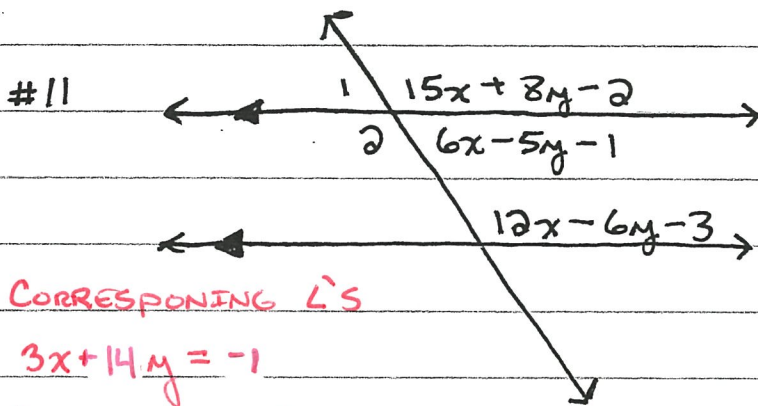 #11
1 15x + 8y - 2
2 6x - 5y - 1
12x - 6y - 3
CORRESPONING ∠'S
3x + 14y = -1